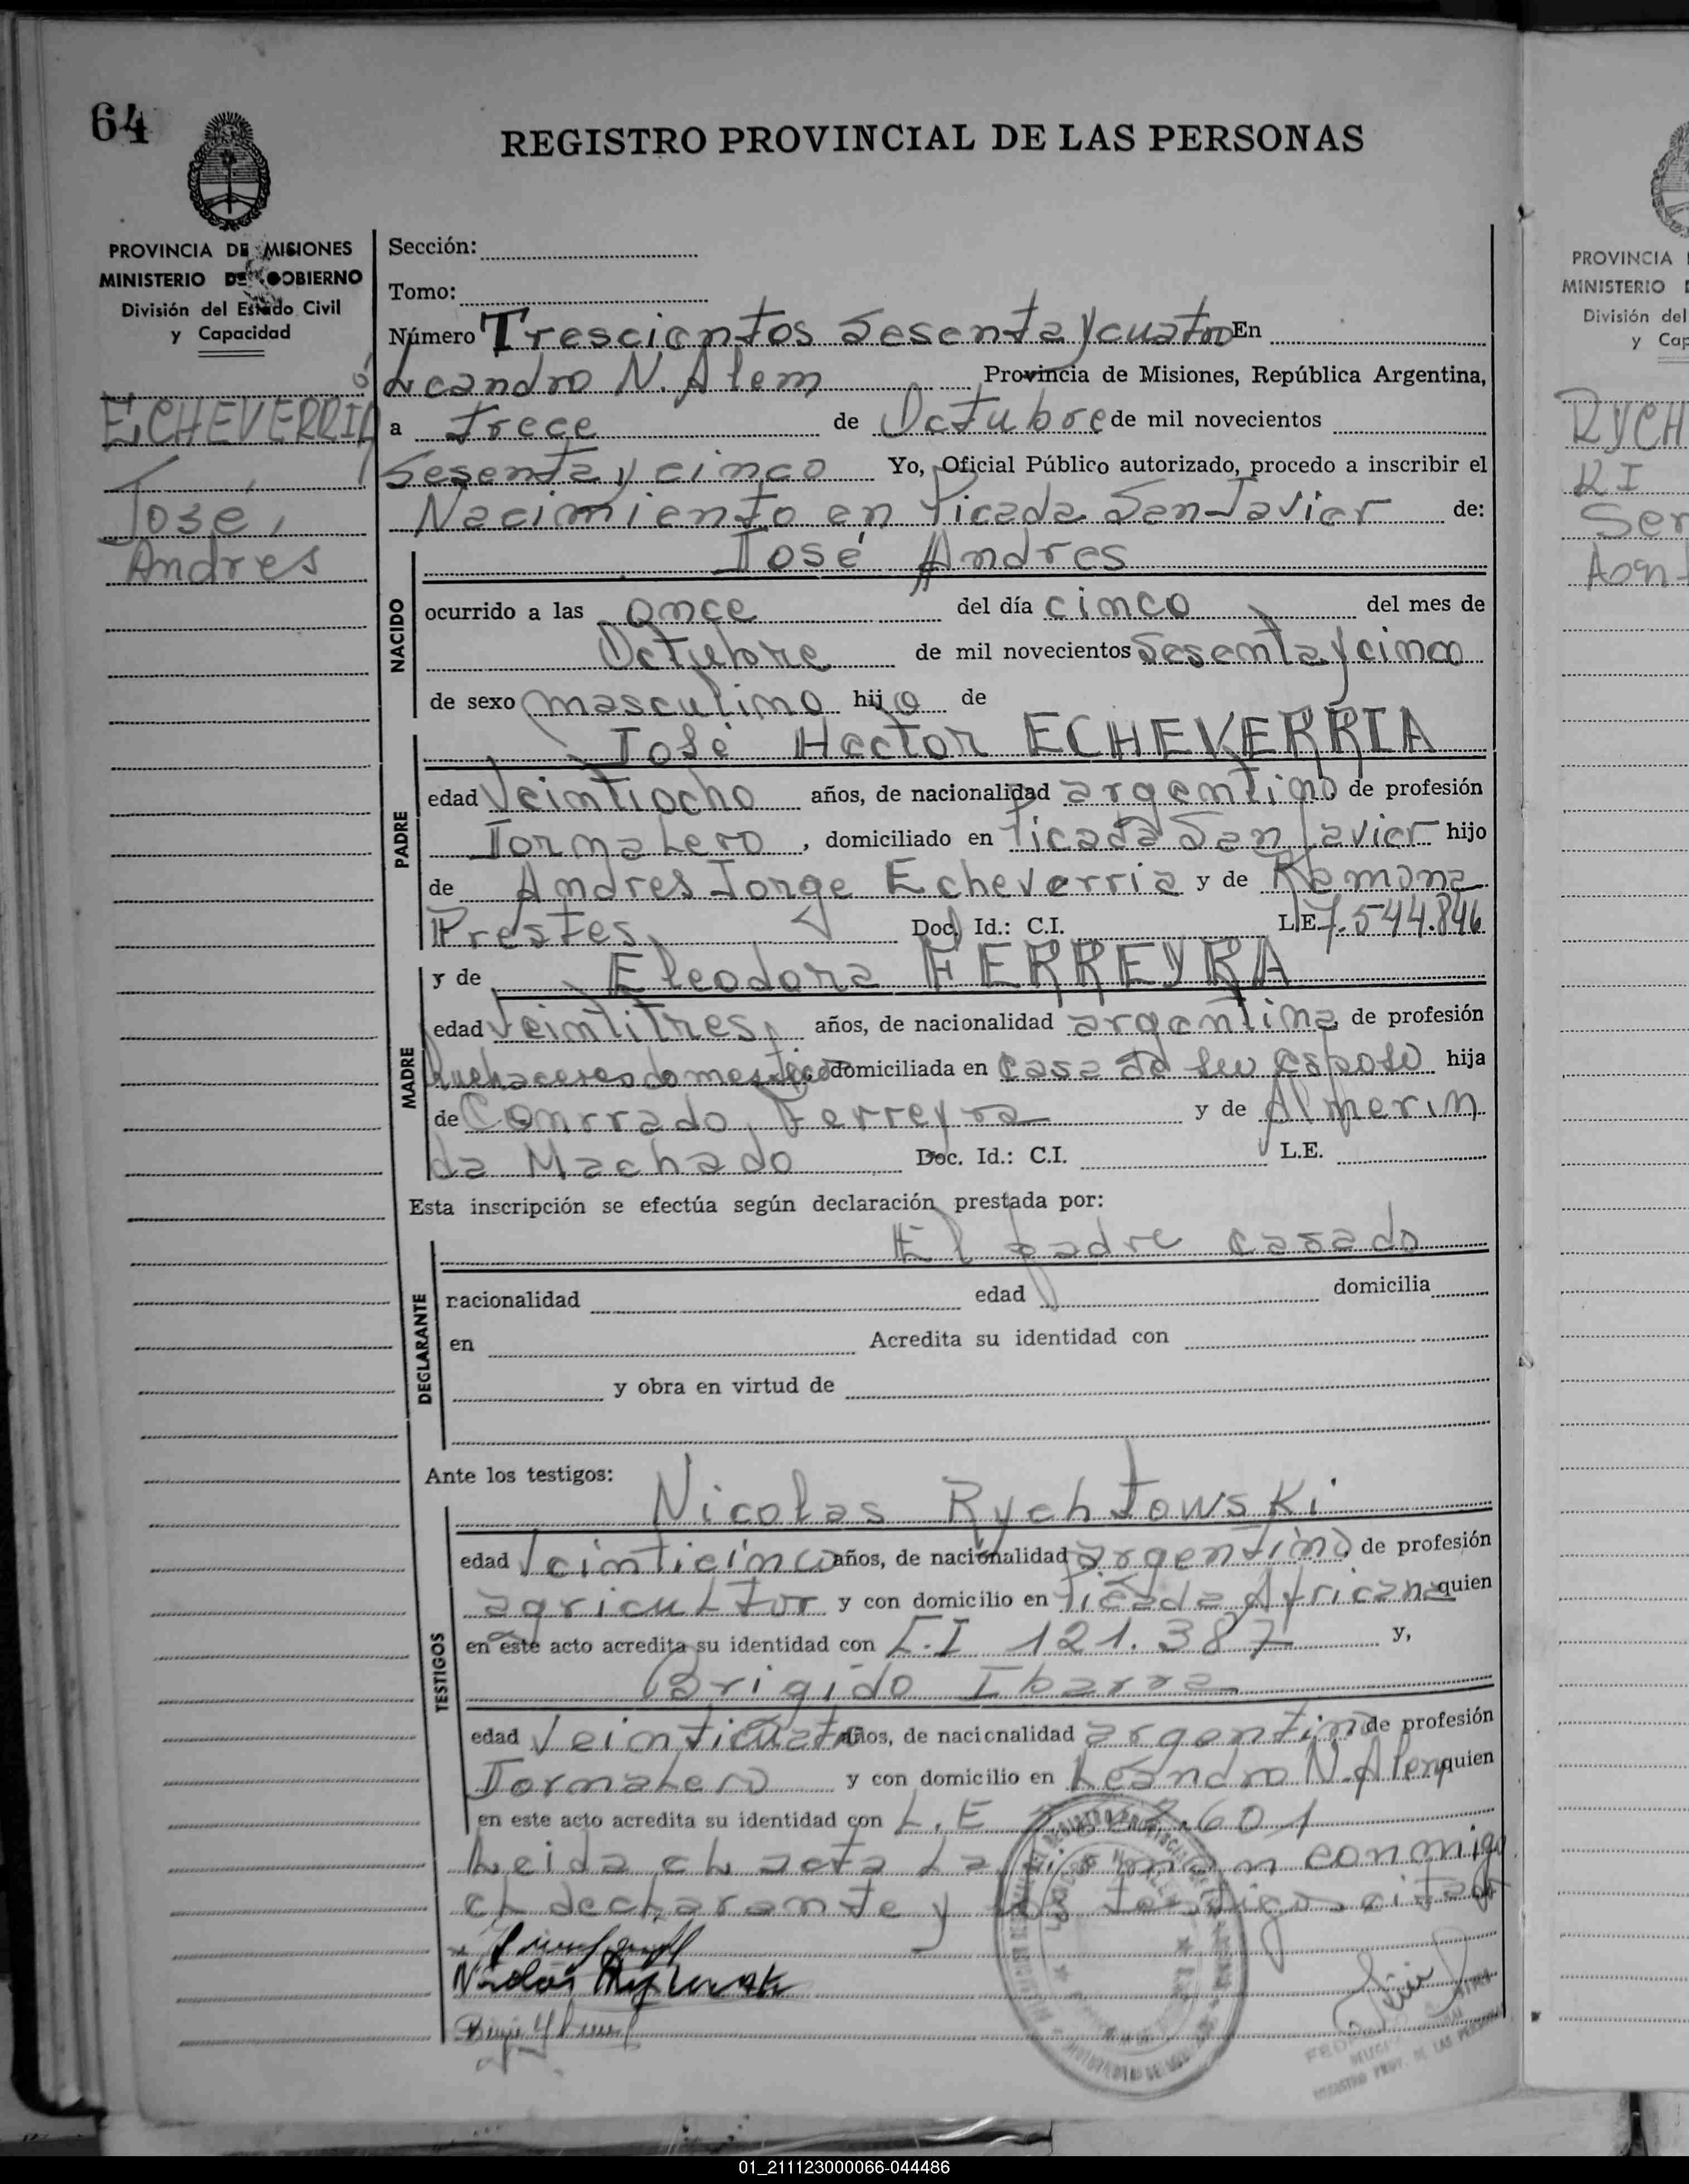 64
REGISTRO PROVINCIAL DE LAS PERSONAS
PROVINCIA DE MISIONES
MINISTERIO DE GOBIERNO
División del Estado Civil
y Capacidad
ECHEVERRIA
José,
Andres
Sección:
Tomo:
Número Trescientos Sesenta y cuatro En
Leandro N. Alem Provincia de Misiones, República Argentina,
a trece de Octubre de mil novecientos
Sesenta y cinco Yo, Oficial Público autorizado, procedo a inscribir el
Nacimiento en Picada San Javier de:
José Andres
NACIDO
ocurrido a las once del día cinco del mes de
Octubre de mil novecientos Sesenta y cinco
de sexo masculino hijo de
José Hector ECHEVERRIA
PADRE
edad Veintiocho años, de nacionalidad argentino de profesión
Jornalero, domiciliado en Picada San Javier hijo
de Andres Jorge Echeverria y de Ramona
Prestes Doc. Id.: C.I. L.E. 7.544.846
y de Eleodora FERREYRA
MADRE
edad Veintitres años, de nacionalidad argentina de profesión
Quehaceres domesticos domiciliada en casa de su esposo hija
de Conrrado Ferreyra y de Almerin
da Machado Doc. Id.: C.I. L.E.
Esta inscripción se efectúa según declaración prestada por:
El padre casado
DECLARANTE
nacionalidad edad domicilia
en Acredita su identidad con
y obra en virtud de
Ante los testigos:
Nicolas Rychtowski
TESTIGOS
edad Veinticinco años, de nacionalidad argentino, de profesión
agricultor y con domicilio en Picada Africana quien
en este acto acredita su identidad con C.I 121.387 y,
Brigido Ibarra
edad Veinticuatro años, de nacionalidad argentino de profesión
Jornalero y con domicilio en Leandro N. Alem quien
en este acto acredita su identidad con L.E 601
Leida el acta la firman conmigo
el declarante y los testigos citados
REGISTRO PROV. DE LAS PERSONAS
PROVINCIA
MINISTERIO
División del
y Cap
RYCH
KI
Ser
01_211123000066-044486